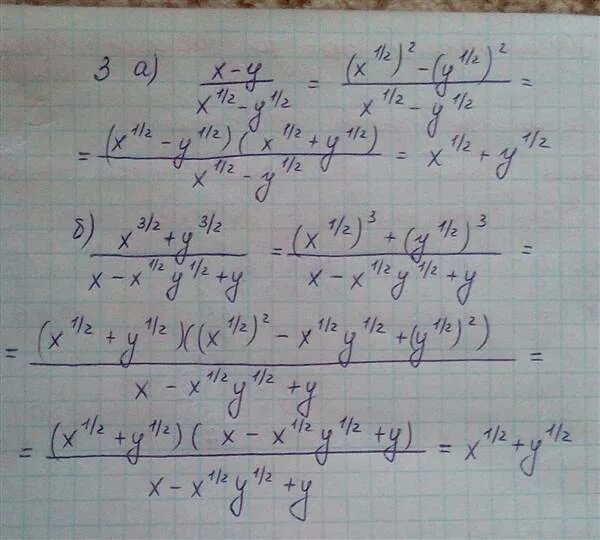 3 а) (x-y)/(x^1/2 - y^1/2) = ((x^1/2)^2 - (y^1/2)^2)/(x^1/2 - y^1/2) =
= ((x^1/2 - y^1/2)(x^1/2 + y^1/2))/(x^1/2 - y^1/2) = x^1/2 + y^1/2
б) (x^3/2 + y^3/2)/(x - x^1/2 y^1/2 + y) = ((x^1/2)^3 + (y^1/2)^3)/(x - x^1/2 y^1/2 + y) =
= ((x^1/2 + y^1/2)((x^1/2)^2 - x^1/2 y^1/2 + (y^1/2)^2))/(x - x^1/2 y^1/2 + y) =
= ((x^1/2 + y^1/2)(x - x^1/2 y^1/2 + y))/(x - x^1/2 y^1/2 + y) = x^1/2 + y^1/2